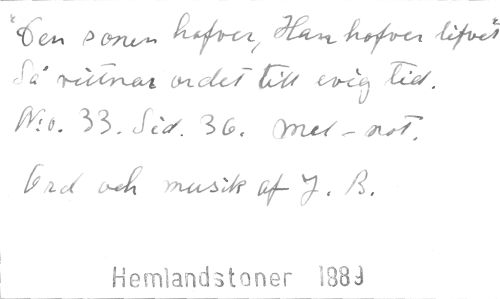 "Den sonen hafver, Han hafver lifvet"
Så vittnar ordet till evig tid.
N:o. 33. Sid. 36. mel-not.
Ord och musik af J. B.
Hemlandstoner 1889